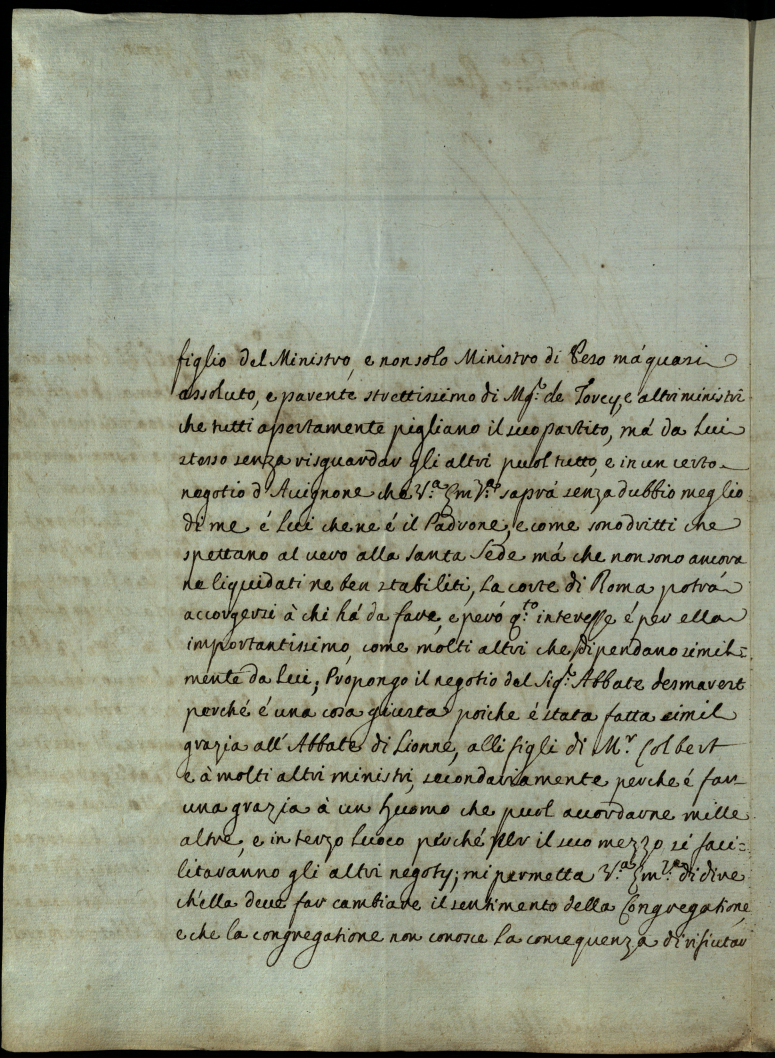 figlio del Ministro, e non solo Ministro di Peso má quasi
assoluto, e parente strettissimo di Mgr. de Torcy, e altri ministri
che tutti apertamente pigliano il suo partito, má da Lui
stesso senza risguardar gli altri puol tutto, e in un certo
negotio d'Avignone che V.a Em.za saprá senza dubbio meglio
di me é Lui che ne é il Padrone, e come sono dritti che
spettano al vero alla Santa Sede má che non sono ancora
ne liquidati ne ben stabiliti, La corte di Roma potrá
accorgersi à chi há da fare, e peró q.to interesse é per ella
importantissimo, come molti altri che dipendano simil-
mente da Lui; Propongo il negotio del Sig.r Abbate desmarest
perché é una cosa giusta poiche é stata fatta simil
grazia all'Abbate di Lionne, alli figli di M.r Colbert
e à molti altri ministri, secondariamente perche é far
una grazia à un huomo che puol accordarne mille
altre, e in terzo Luoco perché per il suo mezzo si faci-
litaranno gli altri negoty; mi permetta V.a Em.za di dire
ch'ella deve far cambiare il sentimento della Congregatione,
e che la congregatione non conosce La consequenza di rifiutar